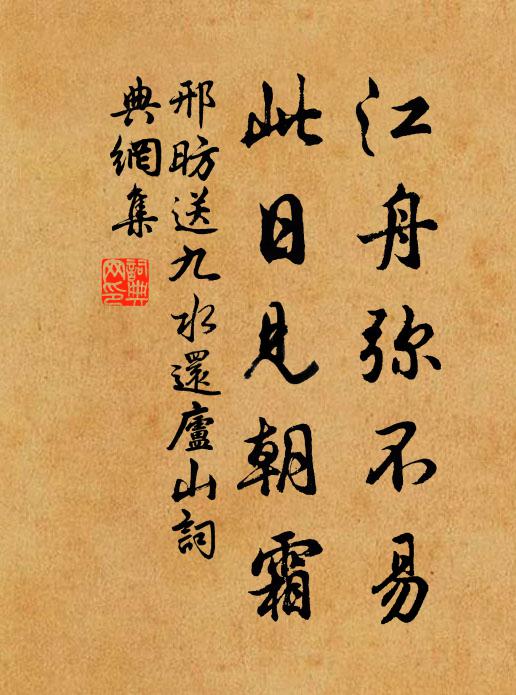 江舟弥不易
此日見朝霜
邢昉送九水還廬山詞
典網集
詞典
网印